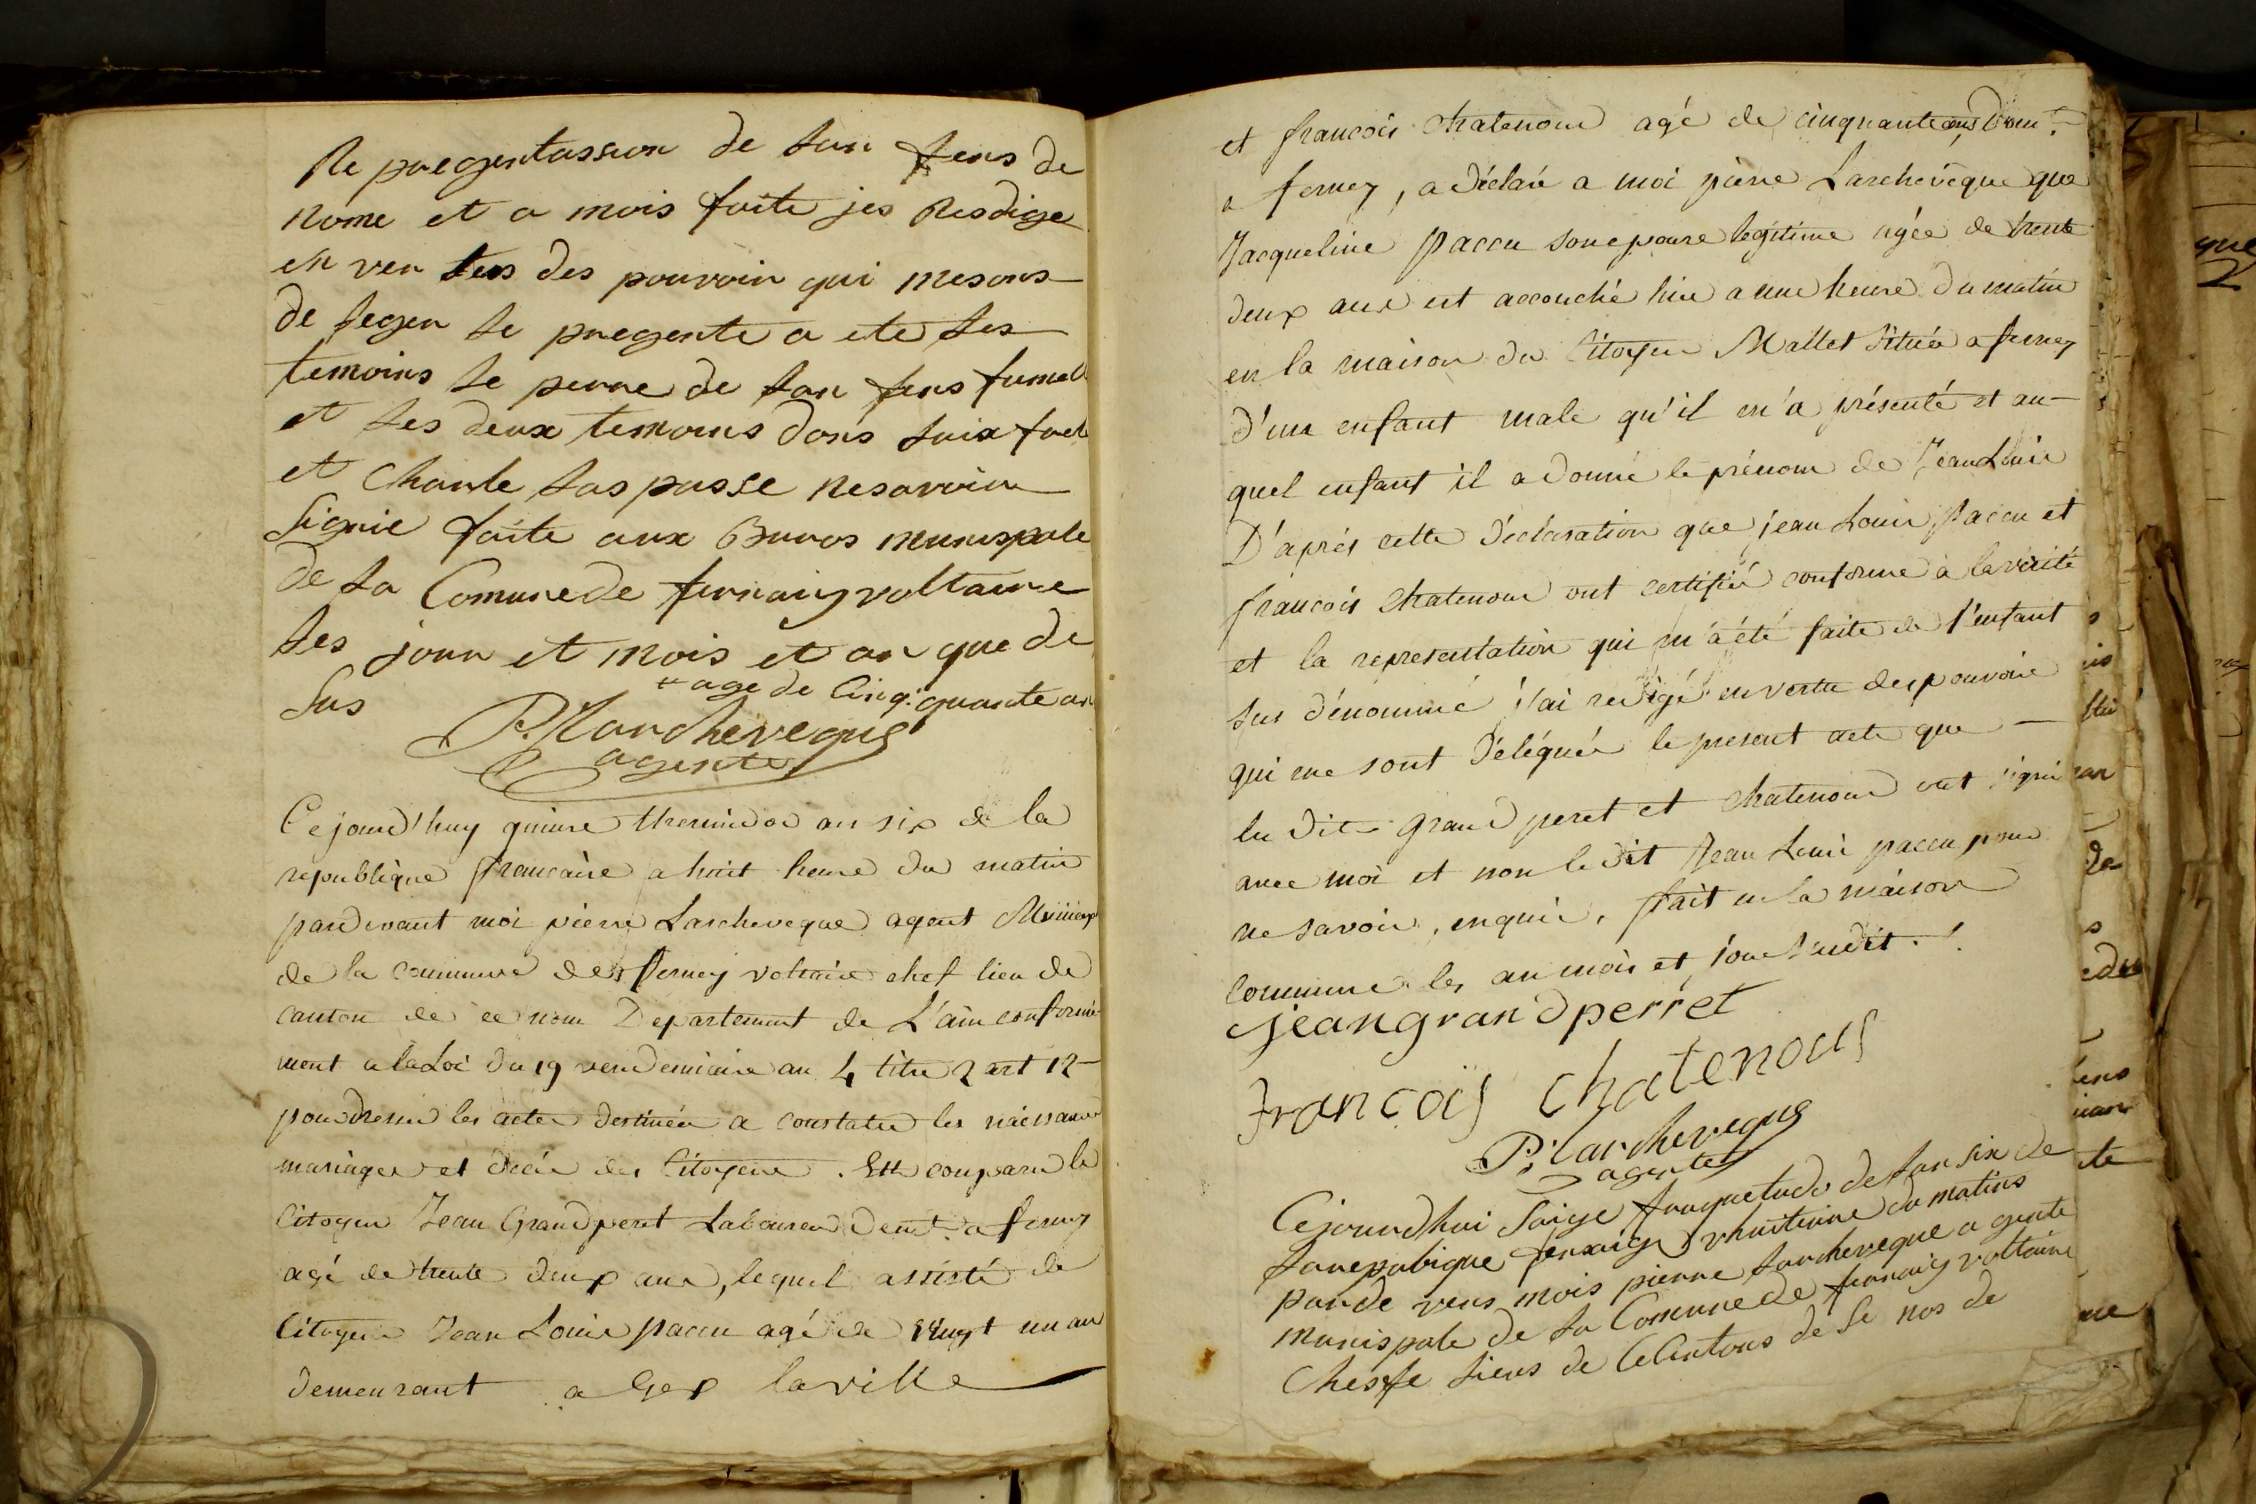 Re pregentassion de lan fens de
nome et a mois faite jes Resdige
en ver tus des pouvoir qui mesons
de leger le pregente a ete les
temoins le perre de lan fens fumel
et les deux temoins dons luix
et Charle las passe nesavoir
signie faite aux Buros munispale
de la Comune de fernaiy voltaire
les jour et mois et an que de
sus
+ age de Cinq.quante an
P. Larcheveque
agente
Ce jourd'huy quinze thermidor an six de la
republique francaise a huit heure du matin
pardevant moi pierre Larcheveque agent Municip
de la commune de ferney voltaire chef lieu de
canton de ce nom Departement de L'ain conformé-
ment a la Loi du 19 vendemiaire an 4 titre 2 art 12 -
pour dresser les actes destinées a constater les naissances
mariages et decès des Citoyens. Est comparu le
Citoyen Jean Grandperet Laboureur demt. a ferney
agé de trente deux ans, lequel assisté de
Citoyens Jean Louis paccu agé de vingt un an
demeurant a Gex la ville
et francois chatenoud agé de cinquante ans dem.t
a ferney, a déclaré a moi pierre Larchevêque que
Jacqueline paccu son epouse legitime agée de trente
deux ans est accouché hier a une heure du matin
en la maison du Citoyen Mallet située a ferney
d'un enfant male qu'il m'a présenté et au-
quel enfant il a donné le prénom de Jean Louis
D'après cette déclaration que jean Louis Paccu et
francois chatenoud ont certifié conforme à la vérité
et la representation qui m'a été faite de l'enfant
sus dénommé j'ai redigé en vertu des pouvoirs
qui me sont délégués le present acte que -
le dit grand peret et chatenoud ont signé
avec moi et non le dit Jean Louis paccu pour
ne savoir, enquis. fait en la maison
commune les an mois et jour susdit./.
jean grandperret
Francois chatenoud
P. Larcheveque
agente
Cejourdhui saige fruquetudo de lan six de
larepubique fransaige vhuiteure du matins
parde vens mois pierre Larcheveque agente
munispale de la Comune de fernaiy voltaire
Chesfe liens de Ce Cantons de se nos de